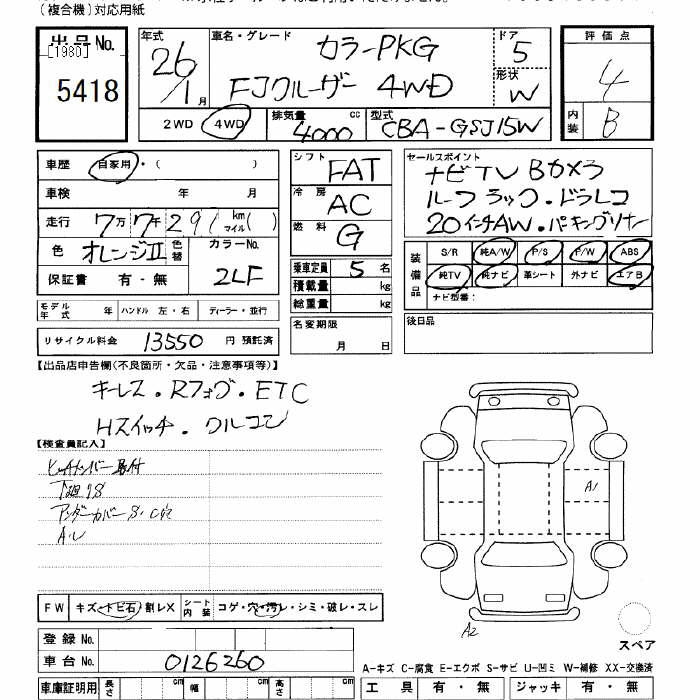 (複合機)対応用紙
出品No.
[1980]
5418
年式
26/1月
車名・グレード
カラーPKG
FJクルーザー 4WD
ドア
5
形状
W
評価点
4
内装
B
2WD 4WD
排気量
4000 cc
型式
CBA-GSJ15W
車歴 自家用・( )
車検 年 月
走行 7万7千291 km マイル( )
色 オレンジII 色替 カラーNo. 2LF
保証書 有・無
モデル年式 年 ハンドル 左・右 ディーラー・並行
リサイクル料金 13550 円 預託済
シフト FAT
冷房 AC
燃料 G
乗車定員 5 名
積載量 kg
総重量 kg
名変期限
月 日
セールスポイント
ナビTV Bカメラ
ルーフラック・ドラレコ
20インチAW・パーキングソナー
装備品
S/R 純A/W P/S P/W ABS
純TV 純ナビ 革シート 外ナビ エアB
ナビ型番:
後日品
【出品店申告欄(不良箇所・欠品・注意事項等)】
キーレス・Rフォグ・ETC
Hスイッチ・クルコン
【検査員記入】
取付
下廻りS
アンダーカバーS・C穴
A・U
A1
A2
FW キズ・トビ石・割レX シート内装 コゲ・穴・汚レ・シミ・破レ・スレ
登録No.
車台No. 0126260
車庫証明用 長さ cm 幅 cm 高さ cm
スペア
A-キズ C-腐食 E-エクボ S-サビ U-凹ミ W-補修 XX-交換済
工具 有・無 ジャッキ 有・無